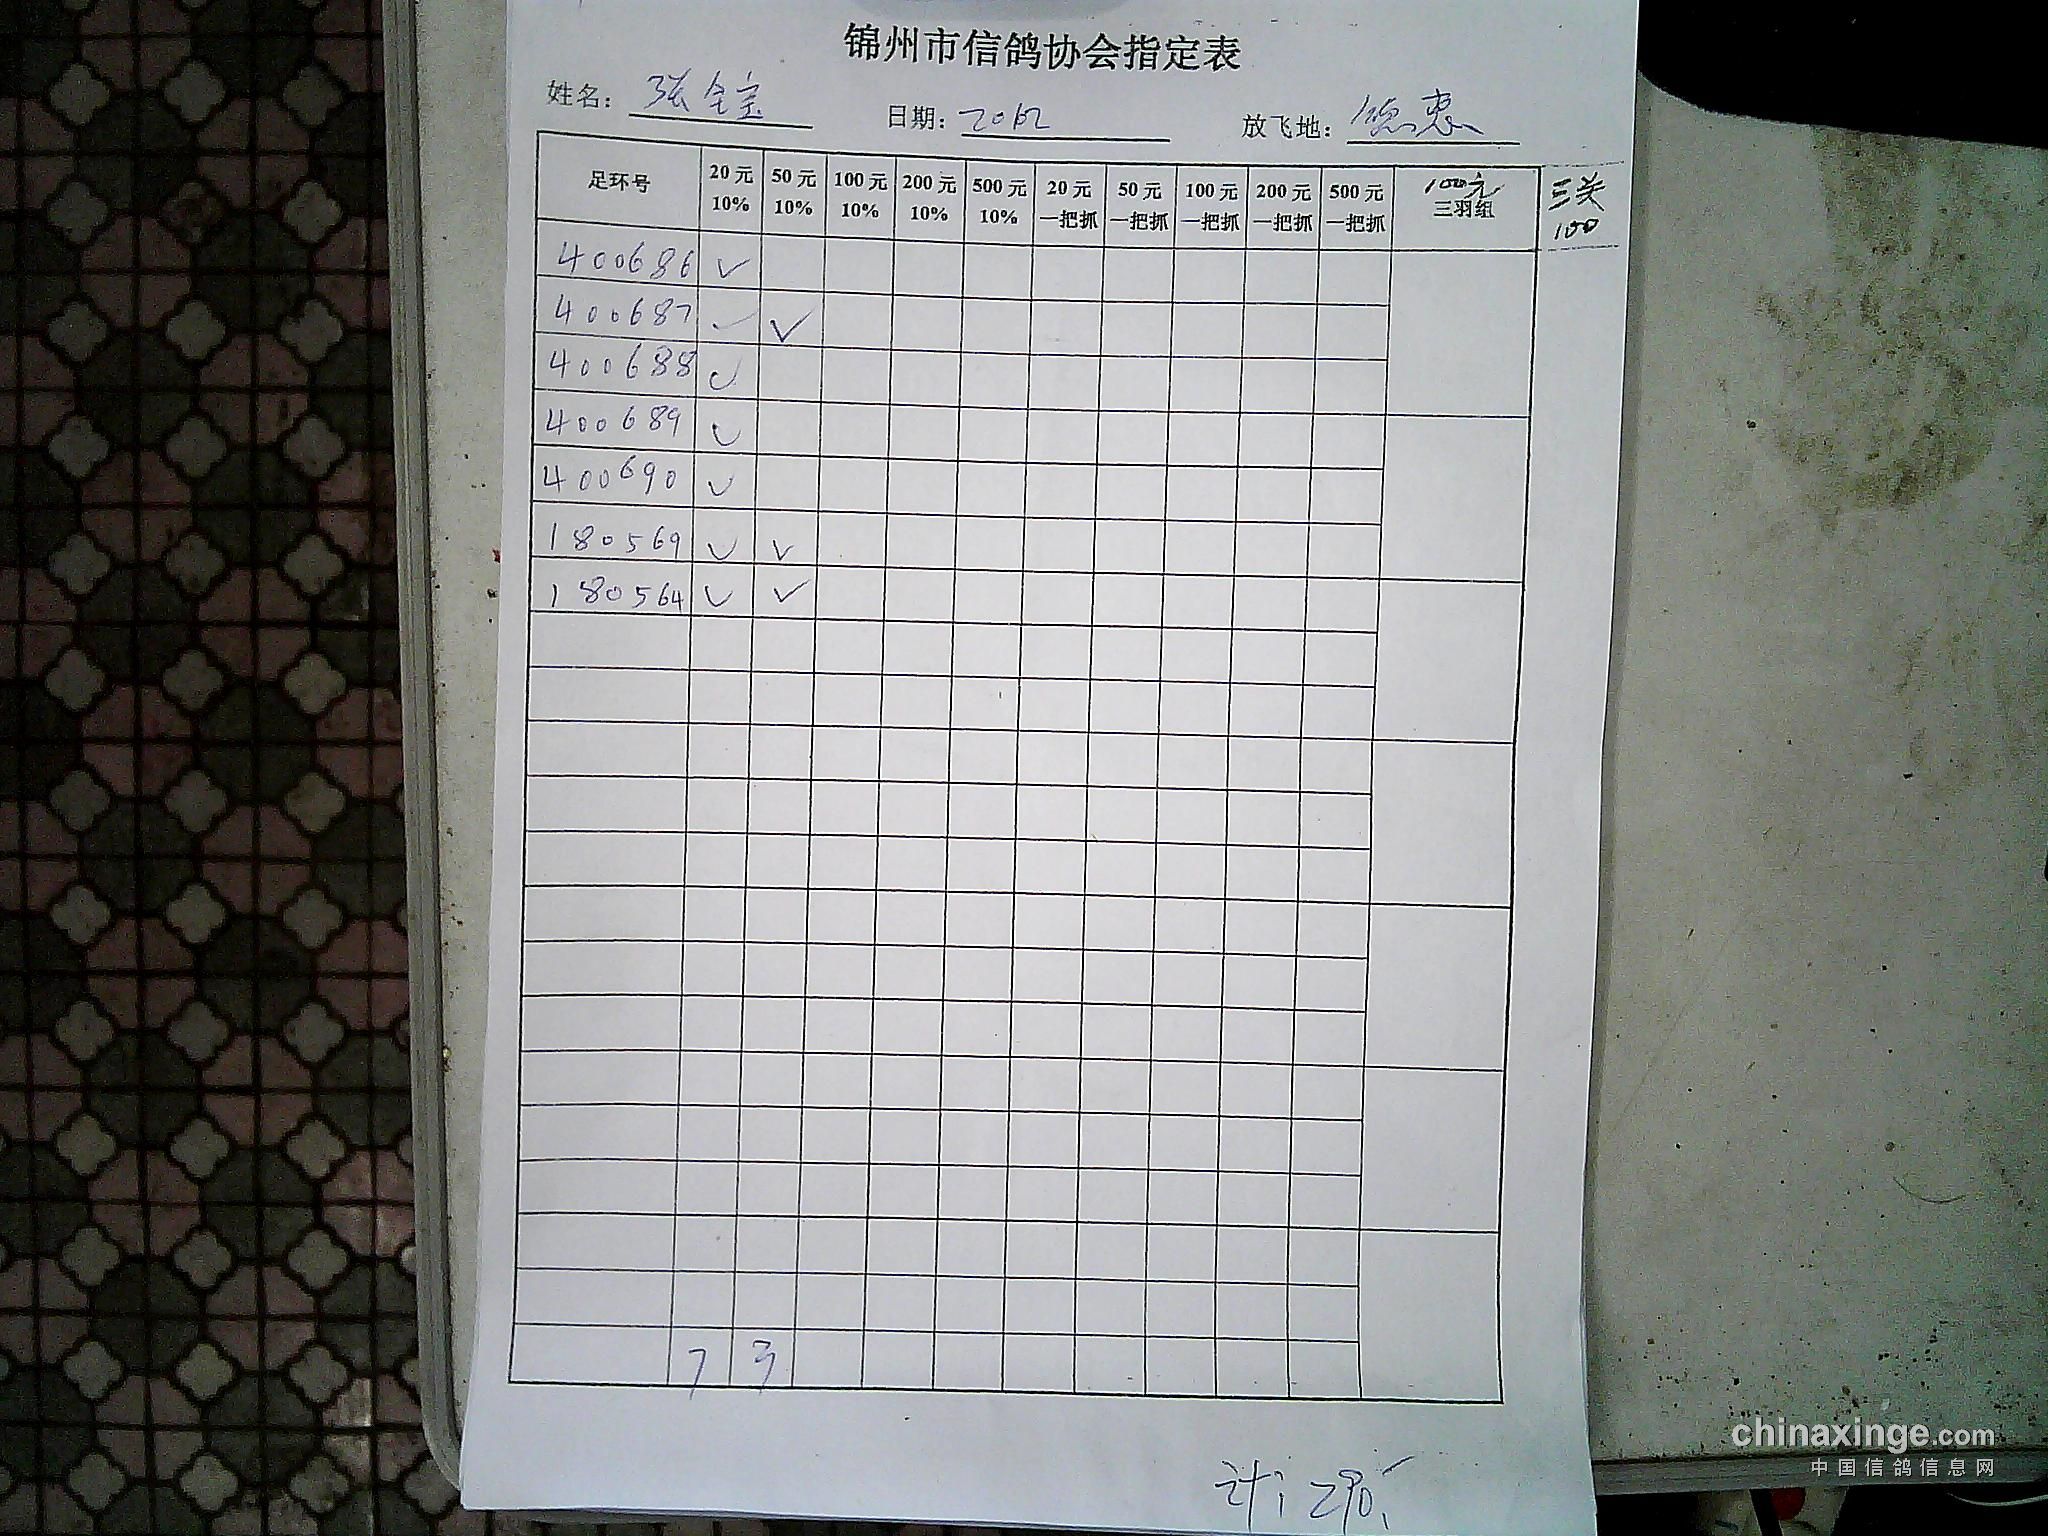 锦州市信鸽协会指定表
姓名: 张全宝 日期: 2012 放飞地: 德惠
足环号 20元 10% 50元 10% 100元 10% 200元 10% 500元 10% 20元 一把抓 50元 一把抓 100元 一把抓 200元 一把抓 500元 一把抓 100元 三羽组 三关 100
400686 ✓
400687 ✓ ✓
400688 ✓
400689 ✓
400690 ✓
180569 ✓ ✓
180564 ✓ ✓
7 3
计: 290.
chinaxinge.com
中国信鸽信息网